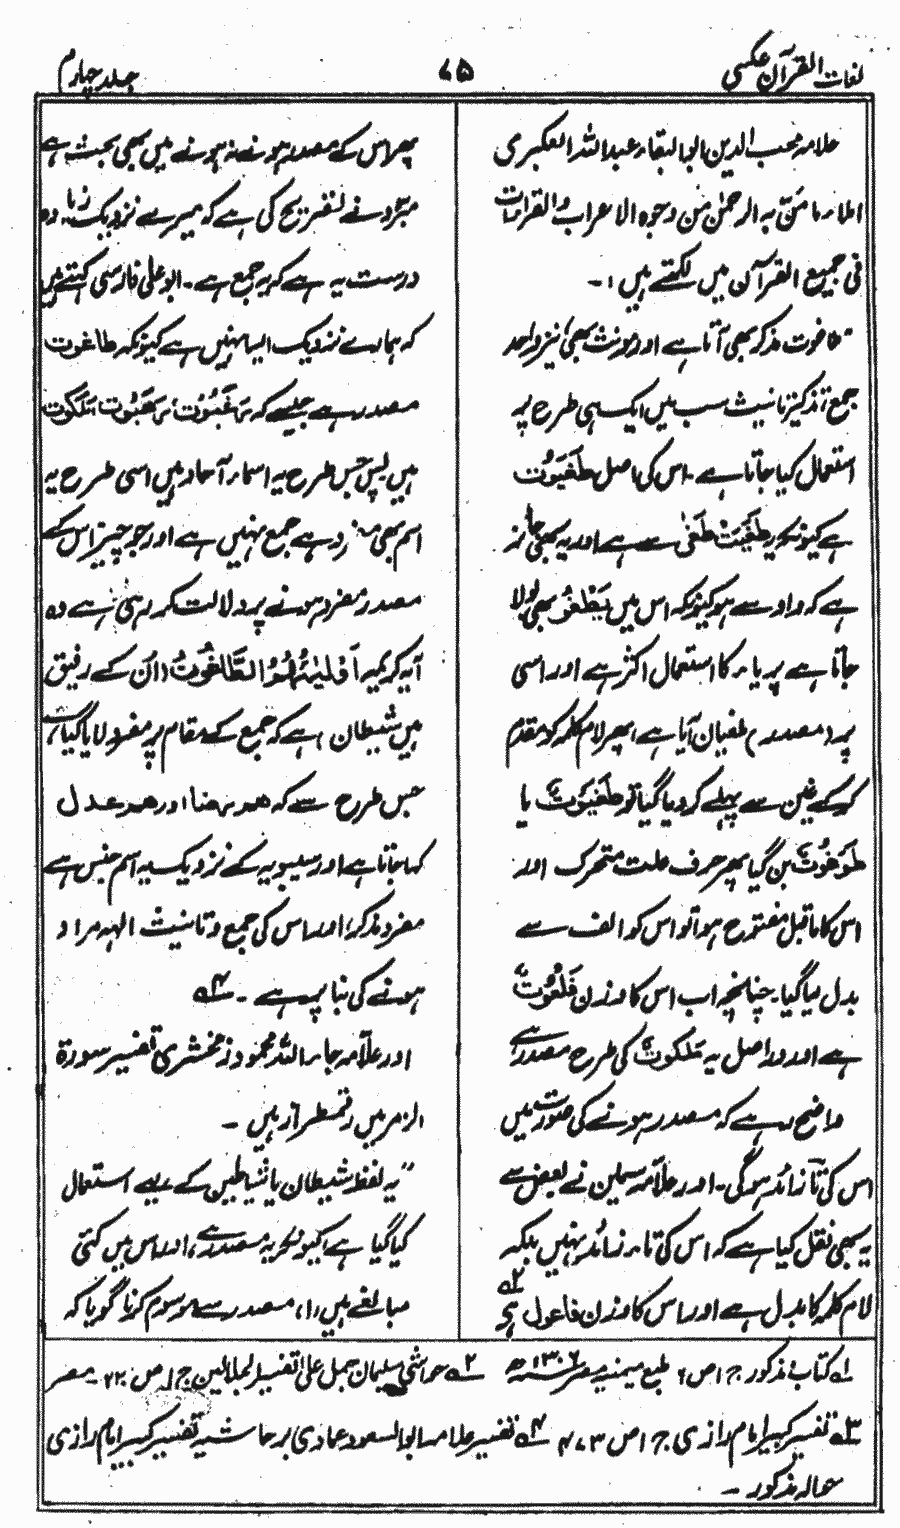 لغات القرآن عکسی
۷۵
جلد چہارم
علامہ محب الدین ابوالبقاء عبداللہ العکبری
املاء ما مَنّ بہ الرحمٰن من وجوہ الاعراب والقراءات
فی جمیع القرآن میں لکھتے ہیں،۔
"طاغوت مذکر بھی آتا ہے اور مونث بھی، نیز واحد
جمع، تذکیر تانیث سب میں ایک ہی طرح پر
استعمال کیا جاتا ہے۔ اس کی اصل طَغَیُوت
ہے کیونکہ یہ طَغَیْتَ تَطْغٰی سے ہے اور یہ بھی جائز
ہے کہ واو سے ہو کیونکہ اس میں یَطْغُوْ بھی بولا
جاتا ہے پر یاء کا استعمال اکثر ہے اور اسی
پر (مصدر) طغیان آیا ہے، پھر لام کلمہ کو مقدم
کر کے غین سے پہلے کر دیا گیا تو طَیَغُوْت یا
طَوَغُوْت بن گیا پھر حرف علت متحرک اور
اس کا ماقبل مفتوح ہوا تو اس کو الف سے
بدل لیا گیا۔ چنانچہ اب اس کا وزن فَلَعُوْت
ہے اور دراصل یہ مَلَکُوت کی طرح مصدر ہے
واضح رہے کہ مصدر ہونے کی صورت میں
اس کی تا زائد ہوگی۔ اور علّامہ سلیمن نے بعض سے
یہ بھی نقل کیا ہے کہ اس کی تاء زائد نہیں بلکہ
لام کلمہ کا بدل ہے اور اس کا وزن فاعول ہے ۲ھ
پھر اس کے مصدر ہونے نہ ہونے میں بھی بحث ہے
مبرّد نے تصریح کی ہے کہ میرے نزدیک زیادہ
درست یہ ہے کہ یہ جمع ہے۔ ابو علی فارسی کہتے ہیں
کہ ہمارے نزدیک ایسا نہیں ہے کیونکہ طاغوت
مصدر ہے جیسے کہ رَغَبُوت، رَهَبُوت، مَلَکُوت
ہیں۔ پس جس طرح یہ اسماء آحاد ہیں اسی طرح یہ
اسم بھی مفرد ہے جمع نہیں ہے اور جو چیز اس کے
مصدر مفرد ہونے پر دلالت کر رہی ہے وہ
آیہ کریمہ اَوْلِیٰٓئُهُمُ الطَّاغُوْتُ (ان کے رفیق
ہیں شیطان) ہے کہ جمع کے مقام پر مفرد لایا گیا ہے،
جس طرح سے کہ هم رضا اور هم عدل
کہا جاتا ہے اور سیبویہ کے نزدیک یہ اسم جنس ہے
مفرد مذکر، اور اس کی جمع و تانیث الٰہہ مراد
ہونے کی بنا پر ہے۔ ۳ھ
اور علّامہ جار اللہ محمود زمخشری تفسیر سورۃ
الزمر میں رقمطراز ہیں۔
"یہ لفظ شیطان یا شیاطین کے لیے استعمال
کیا گیا ہے، کیونکہ یہ مصدر ہے، اور اس میں کئی
مبالغے ہیں (۱) مصدر سے موسوم کرنا گویا کہ
۱ھ کتاب مذکور ج ۱ ص ۶ طبع میمنیہ مصر ۱۳۰۶ھ ۲ھ حواشی سلیمان جمل علی تفسیر الجلالین ج ۱ ص ۲۲۰ مصر
۳ھ تفسیر کبیر امام رازی ج ۱ ص ۴۷۳ ۴ھ تفسیر علامہ ابوالسعود عمادی بر حاشیہ تفسیر کبیر امام رازی
حوالہ مذکور۔